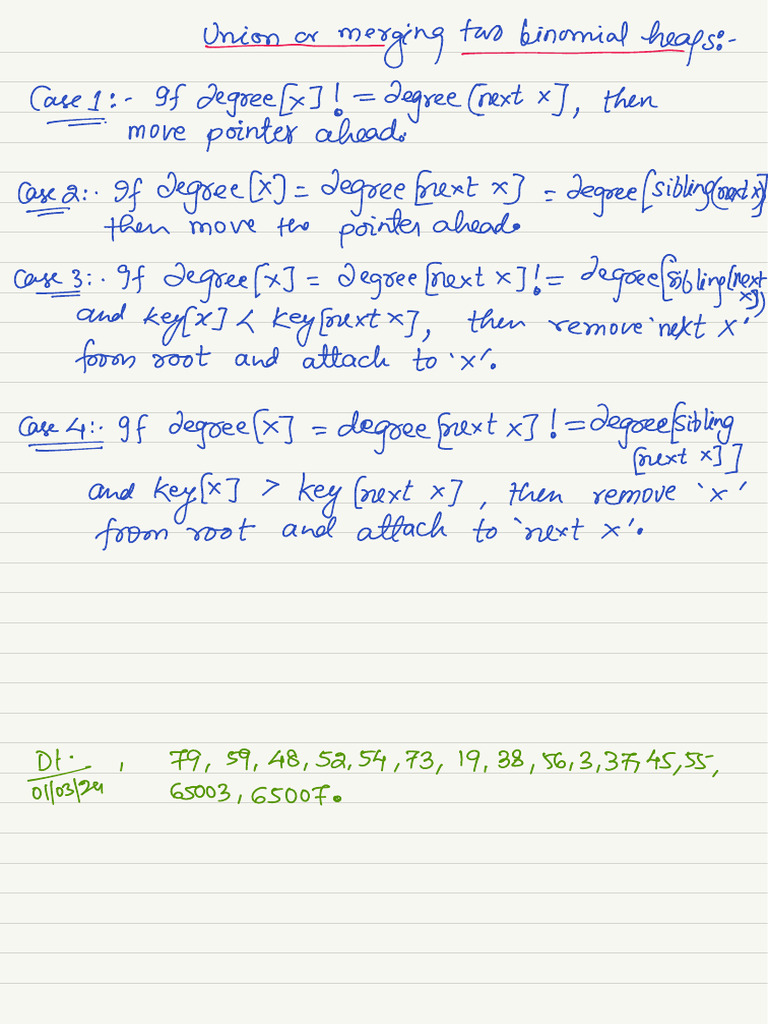 Union or merging two binomial heaps:-
Case 1:- If degree[x] != degree[next x], then
move pointer ahead.
Case 2:- If degree[x] = degree[next x] = degree[sibling[next x]]
then move the pointer ahead.
Case 3:- If degree[x] = degree[next x] != degree[sibling[next
x])
and key[x] < key[next x], then remove 'next x'
from root and attach to 'x'.
Case 4:- If degree[x] = degree[next x] != degree[sibling
[next x]]
and key[x] > key[next x], then remove 'x'
from root and attach to 'next x'.
Dt. , 79, 59, 48, 52, 54, 73, 19, 38, 56, 3, 37, 45, 55,
01/03/24 65003, 65007.